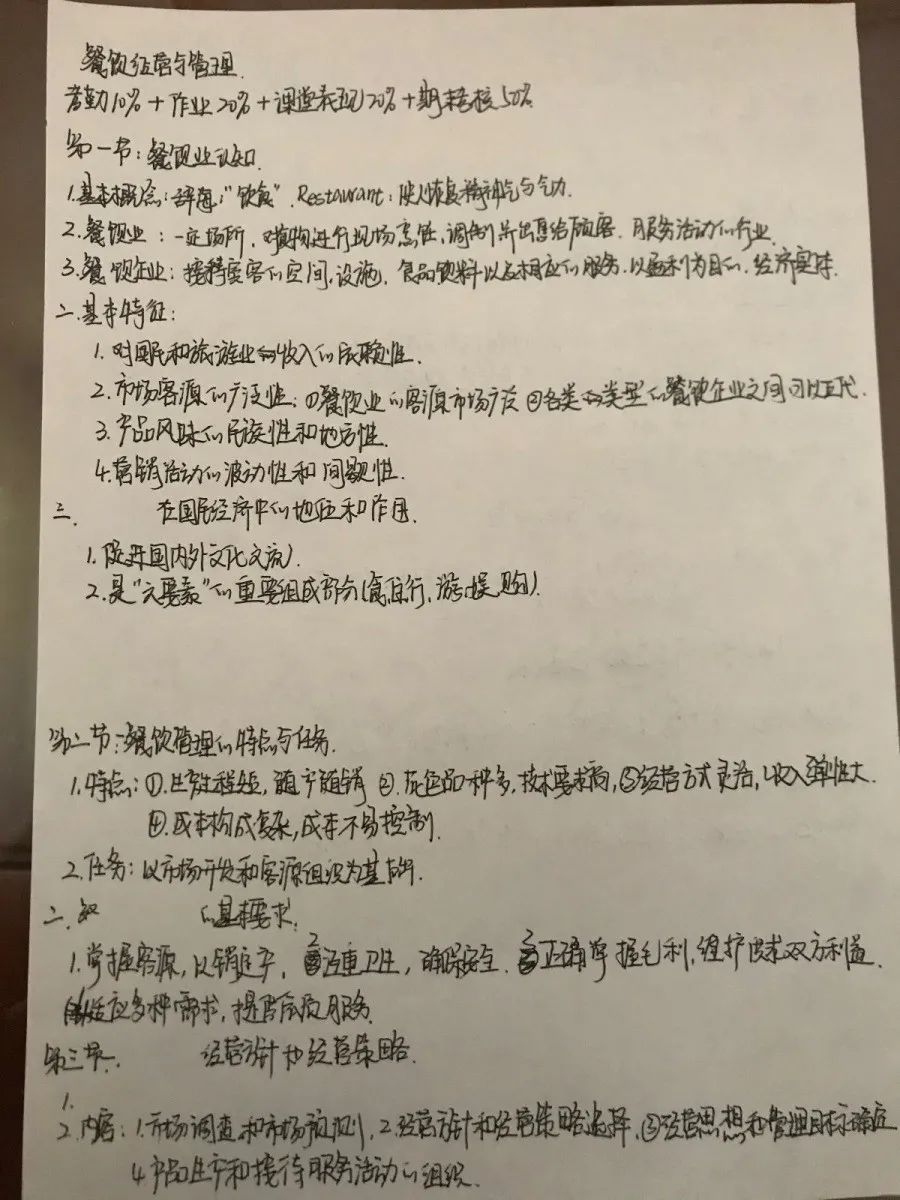 餐饮经营与管理
考勤10%+作业20%+课堂表现20%+期末考核50%
第一节:餐饮业认知
1.基本概念:辞海:"饮食". Restaurant:使人恢复精神气与气力.
2.餐饮业:一定场所,对食物进行现场烹饪,调制并出售给顾客.用服务活动的行业.
3.餐饮企业:接待宾客的空间,设施,食品饮料以及相应的服务.以盈利为目的.经济实体.
二.基本特征:
1.对国民和旅游业收入的依赖性.
2.市场客源的广泛性:①餐饮业的客源市场广泛②各类类型的餐饮企业之间可以互代.
3.产品风味的民族性和地方性.
4.营销活动的波动性和间歇性.
三. 在国民经济中的地位和作用.
1.促进国内外文化交流.
2.是"六要素"的重要组成部分(食住行、游娱购).
第二节:餐饮管理的特点与任务.
1.特点:①.生产过程短,随产随销②.花色品种多,技术要求高,③经营方式灵活,收入弹性大.
④.成本构成复杂,成本不易控制.
2.任务:以市场开发和客源组织为基础.
二. 的基本要求.
1.掌握客源,以销定产, 2注重卫生,确保安全. 3正确掌握毛利,维护供求双方利益.
适应多种需求,提高优质服务.
第三节. 经营方针和经营策略.
1.
2.内容:1.市场调查和市场预测,2经营方针和经营策略选择,③经营思想和管理目标确定
4.产品生产和接待服务活动的组织.